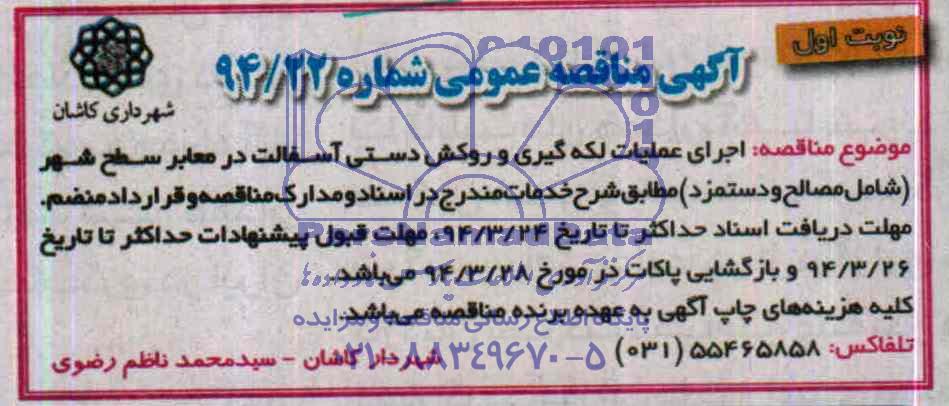 نوبت اول
آگهی مناقصه عمومی شماره ۹۴/۲۲
شهرداری کاشان
موضوع مناقصه: اجرای عملیات لکه گیری و روکش دستی آسفالت در معابر سطح شهر
(شامل مصالح و دستمزد) مطابق شرح خدمات مندرج در اسناد و مدارک مناقصه و قرارداد منضم.
مهلت دریافت اسناد حداکثر تا تاریخ ۹۴/۳/۲۴، مهلت قبول پیشنهادات حداکثر تا تاریخ
۹۴/۳/۲۶ و بازگشایی پاکات در مورخ ۹۴/۳/۲۸ می‌باشد.
کلیه هزینه‌های چاپ آگهی به عهده برنده مناقصه می‌باشد.
پایگاه اطلاع رسانی مناقصه و مزایده
تلفاکس: ۵۵۴۶۵۸۵۸ (۰۳۱)
شهردار کاشان - سیدمحمد ناظم رضوی
۰۲۱-۸۸۳۴۹۶۷۰-۵